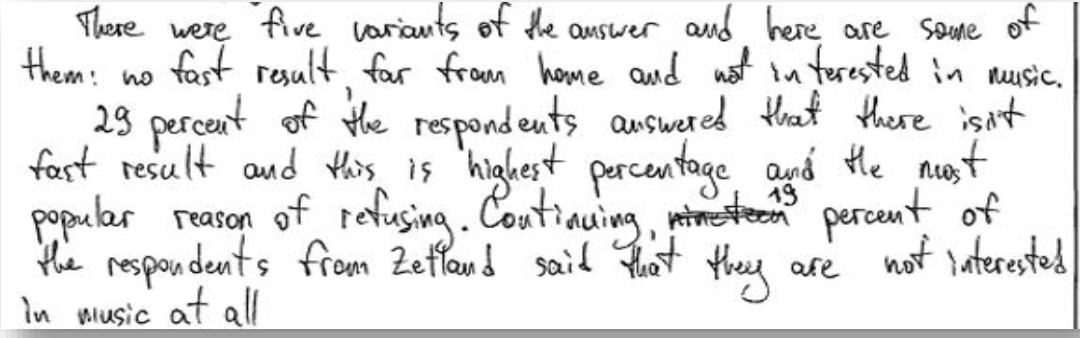 There were five variants of the answer and here are some of
them: no fast result, far from home and not interested in music.
29 percent of the respondents answered that there isn't
fast result and this is highest percentage and the most
popular reason of refusing. Continuing, 19 percent of
the respondents from Zetland said that they are not interested
in music at all